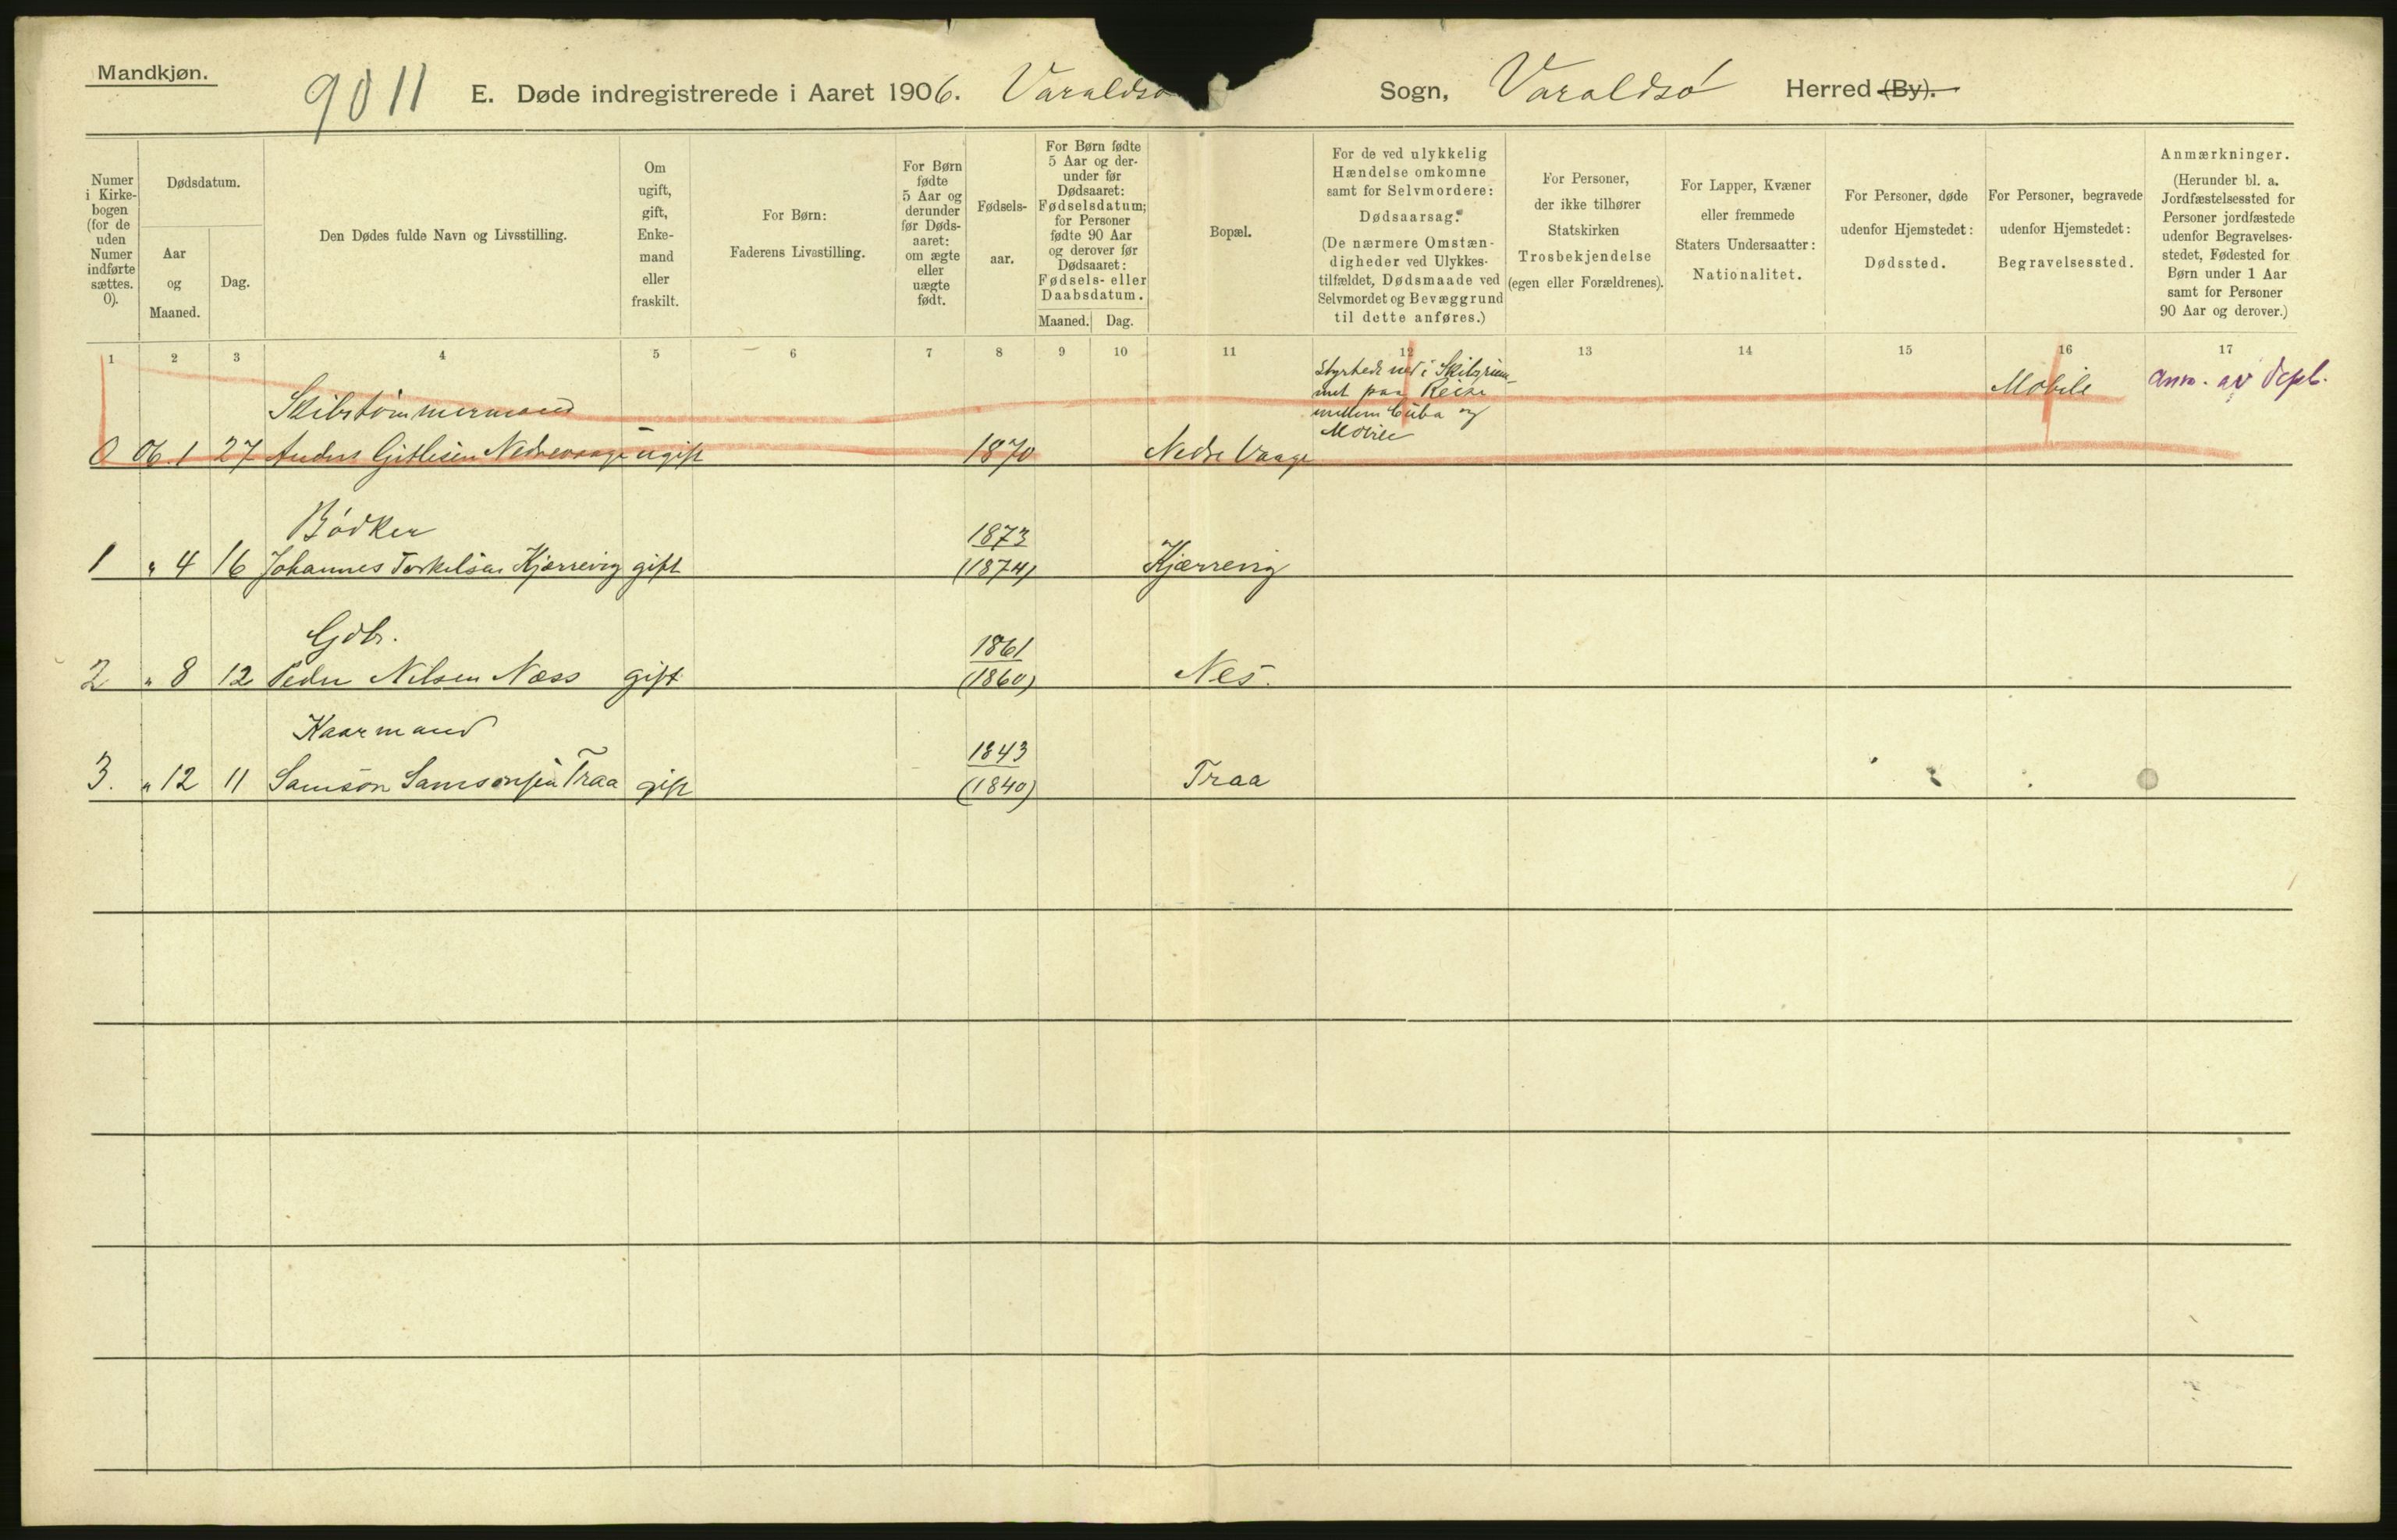 Mandkjøn.
9011 E. Døde indregistrerede i Aaret 1906. Varaldsø Sogn, Varaldsø Herred (By).
Numer i Kirke-
bogen
(for de
uden
Numer
indførte
sættes.
0).
Dødsdatum.
Aar
og
Maaned.
Dag.
Den Dødes fulde Navn og Livsstilling.
Om
ugift,
gift,
Enke-
mand
eller
fraskilt.
For Børn:
Faderens Livsstilling.
For Børn
fødte
5 Aar og
derunder
før Døds-
aaret:
om ægte
eller
uægte
født.
Fødsels-
aar.
For Børn fødte
5 Aar og der-
under før
Dødsaaret:
Fødselsdatum;
for Personer
fødte 90 Aar
og derover før
Dødsaaret:
Fødsels- eller
Daabsdatum.
Maaned. Dag.
Bopæl.
For de ved ulykkelig
Hændelse omkomne
samt for Selvmordere:
Dødsaarsag.
(De nærmere Omstæn-
digheder ved Ulykkes-
tilfældet, Dødsmaade ved
Selvmordet og Bevæggrund
til dette anføres.)
For Personer,
der ikke tilhører
Statskirken
Trosbekjendelse
(egen eller Forældrenes).
For Lapper, Kvæner
eller fremmede
Staters Undersaatter:
Nationalitet.
For Personer, døde
udenfor Hjemstedet:
Dødssted.
For Personer, begravede
udenfor Hjemstedet:
Begravelsessted.
Anmærkninger.
(Herunder bl. a.
Jordfæstelsessted for
Personer jordfæstede
udenfor Begravelses-
stedet, Fødested for
Børn under 1 Aar
samt for Personer
90 Aar og derover.)
1 2 3 4 5 6 7 8 9 10 11 12 13 14 15 16 17
Styrtede ned i Skibsrum-
met paa Reise
mellem Cuba og
Mobile
Mobile
Anm. av Dept.
Skibstømmermand
0 06.1 27 Anders Gitlesen Nedrevaage ugift 1870 Nedre Vaage
Bødker
1873
1 " 4 16 Johannes Torkelsen Kjærrevig gift (1874) Kjærrevig
Gdbr.
1861
2 " 8 12 Peder Nilsen Næss gift (1860) Nes.
Kaarmand
1843
3. " 12 11 Samson Samsonsen Traa gift (1840) Traa